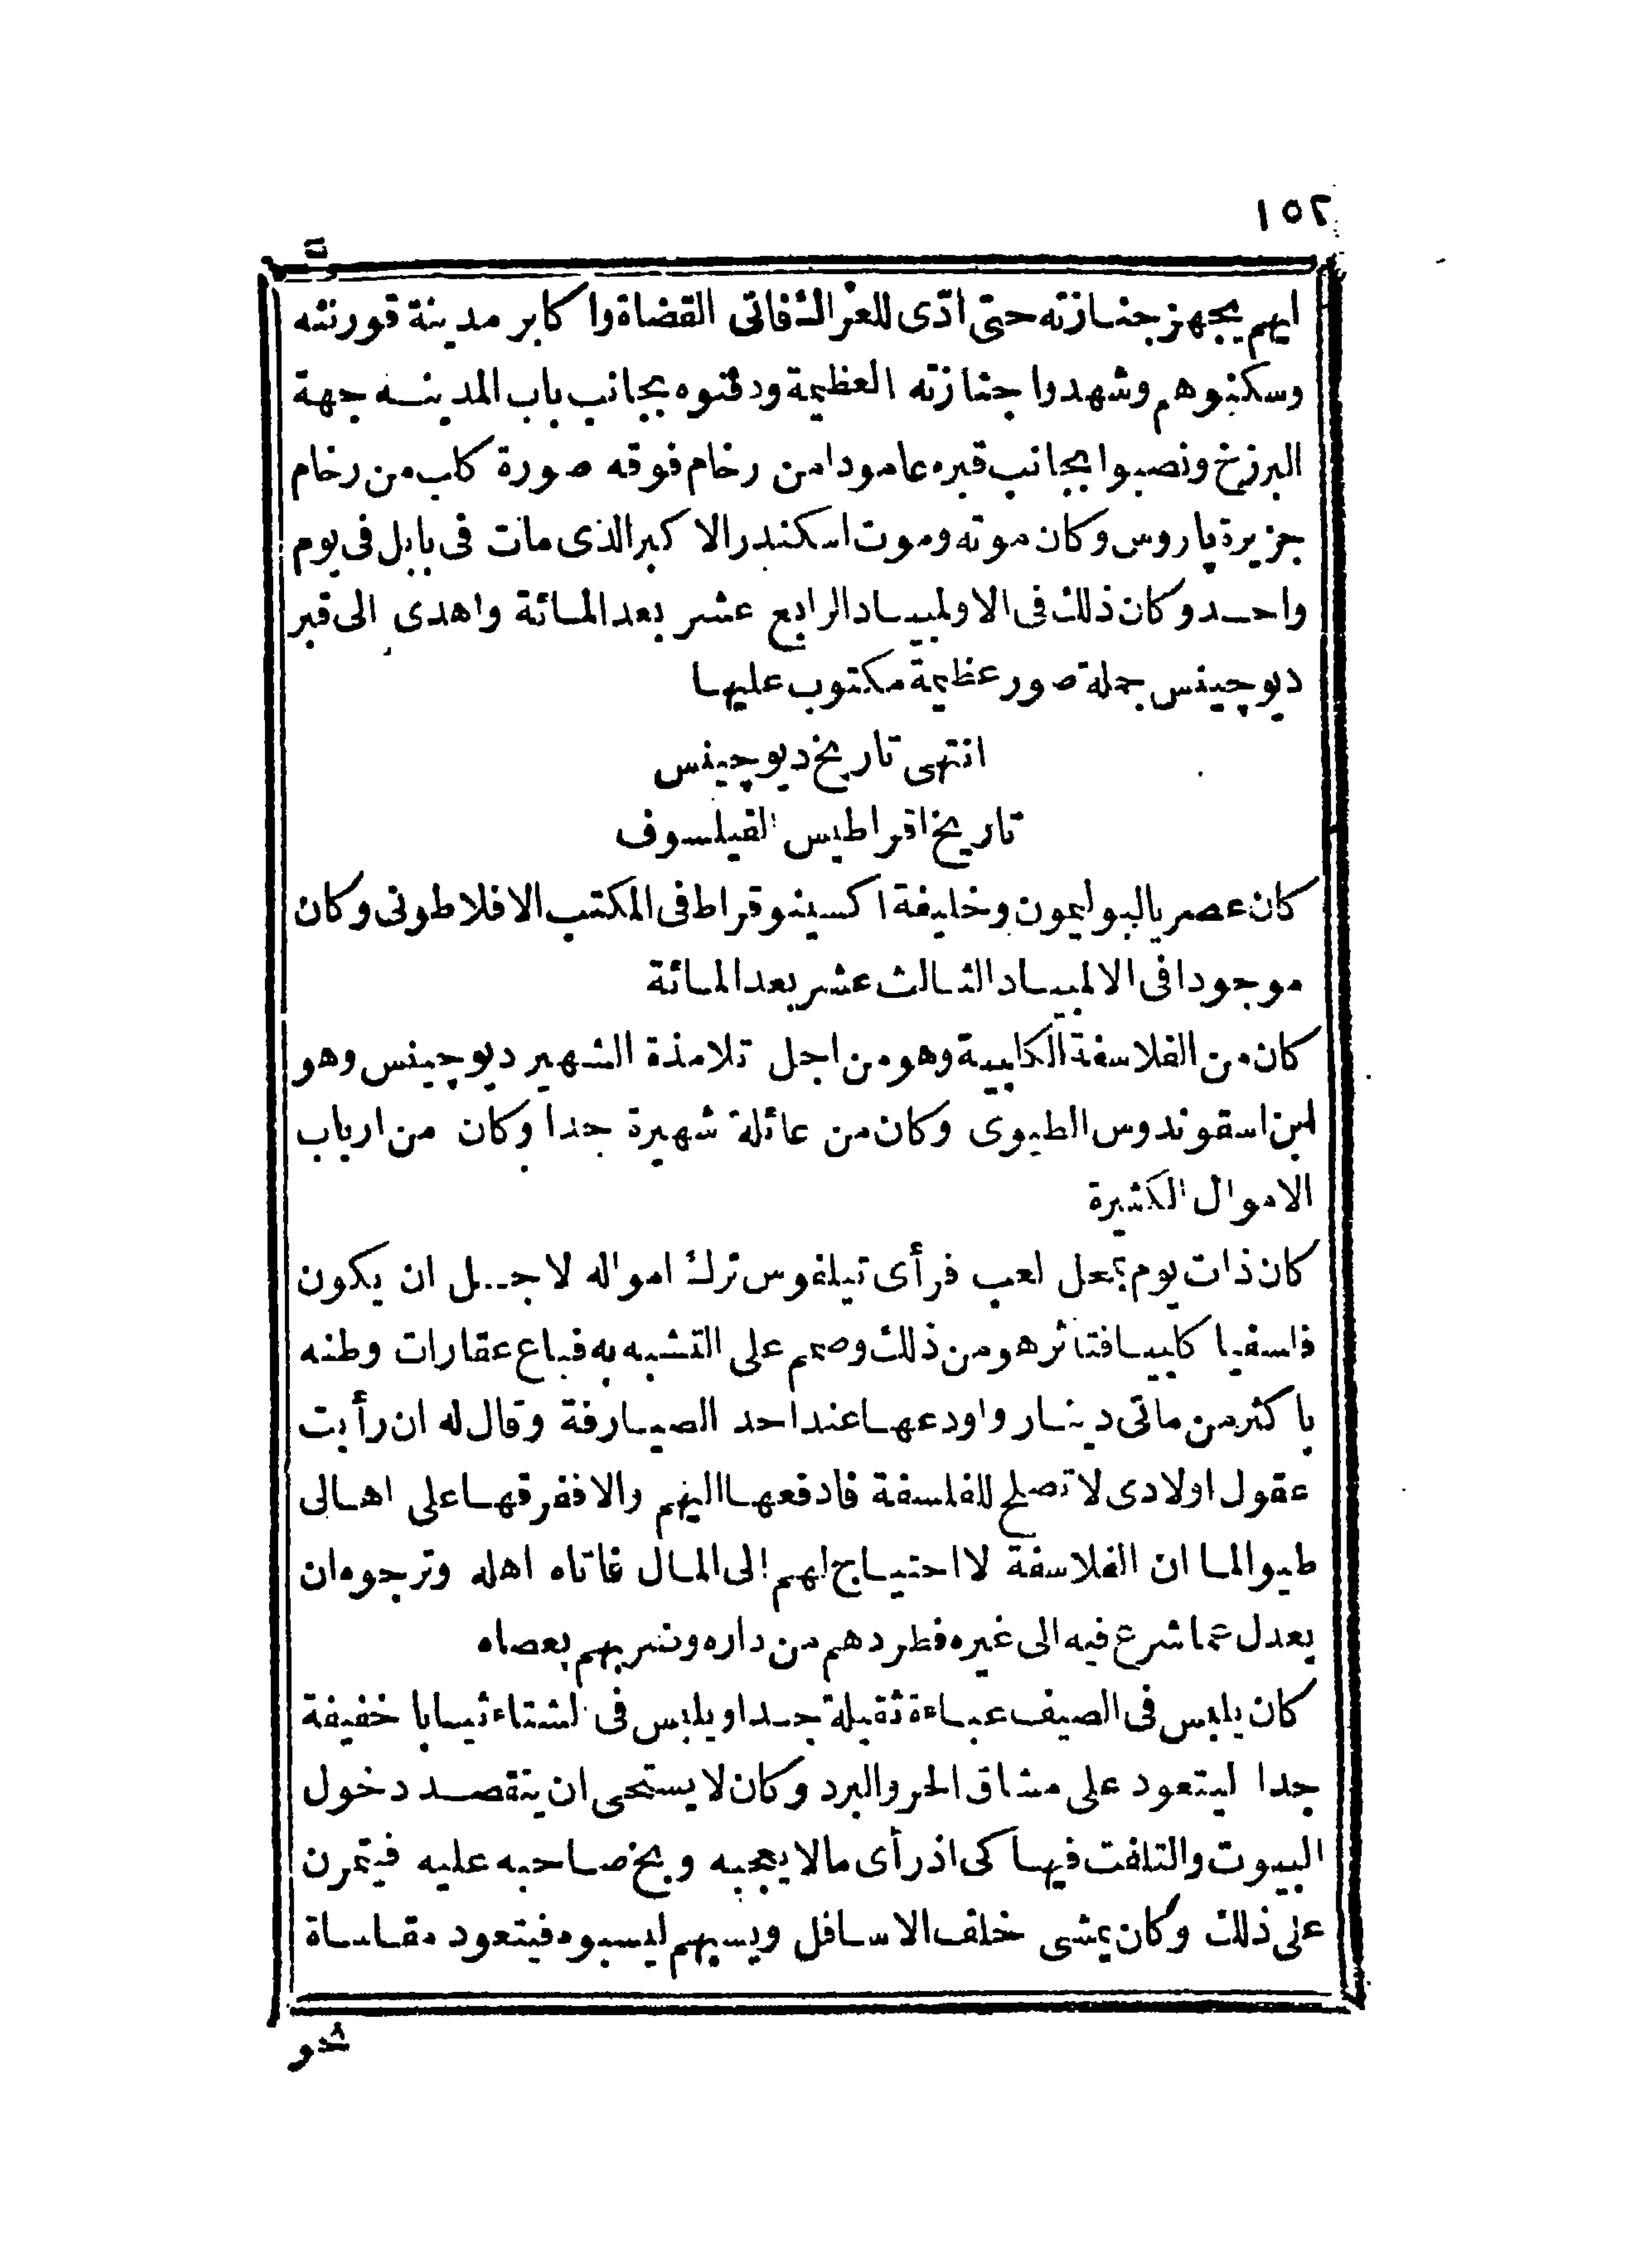 ١٥٢
ايهم يجهز جنازته حتى ادّى للعراك فاتى القضاة واكابر مدينة قورنثه
وسكنوهم وشهدوا جنازته العظيمة ودفنوه بجانب باب المدينه جهة
البرزخ ونصبوا بجانب قبره عامودا من رخام فوقه صورة كلب من رخام
جزيرة پاروس وكان موته وموت اسكندر الاكبر الذى مات فى بابل فى يوم
واحد وكان ذلك فى الاولمپياد الرابع عشر بعد المائة واهدى الى قبر
ديوچينس جملة صور عظيمة مكتوب عليها
انتهى تاريخ ديوچينس
تاريخ اقراطيس الفيلسوف
كان عصريا لبوليمون وخليفة اكسينوقراط فى المكتب الافلاطونى وكان
موجودا فى الالمپياد الثالث عشر بعد المائة
كان من الفلاسفة الكلبية وهو من اجل تلامذة الشهير ديوچينس وهو
ابن اسقوندوس الطيوى وكان من عائلة شهيرة جدا وكان من ارباب
الاموال الكثيرة
كان ذات يوم بمحل لعب فرأى تيلفوس ترك امواله لاجل ان يكون
فلسفيا كلبيا فتأثر هو من ذلك وصمم على التشبه به فباع عقارات وطنه
باكثر من ماتى دينار واودعها عند احد الصيارفة وقال له ان رأيت
عقول اولادى لا تصلح للفلسفة فادفعها اليهم والا ففرقها على اهالى
طيوا لما ان الفلاسفة لا احتياج لهم الى المال فاتاه اهله وترجوه ان
يعدل عما شرع فيه الى غيره فطردهم من داره وضربهم بعصاه
كان يلبس فى الصيف عباءة ثقيلة جدا ويلبس فى الشتاء ثيابا خفيفة
جدا ليتعود على مشاق الحر والبرد وكان لا يستحى ان يتقصد دخول
البيوت والتلفت فيها كى اذ رأى مالا يعجبه وبخ صاحبه عليه فيتمرن
على ذلك وكان يمشى خلف الاسافل ويسبهم ليسبوه فيتعود مقاساة
نحو